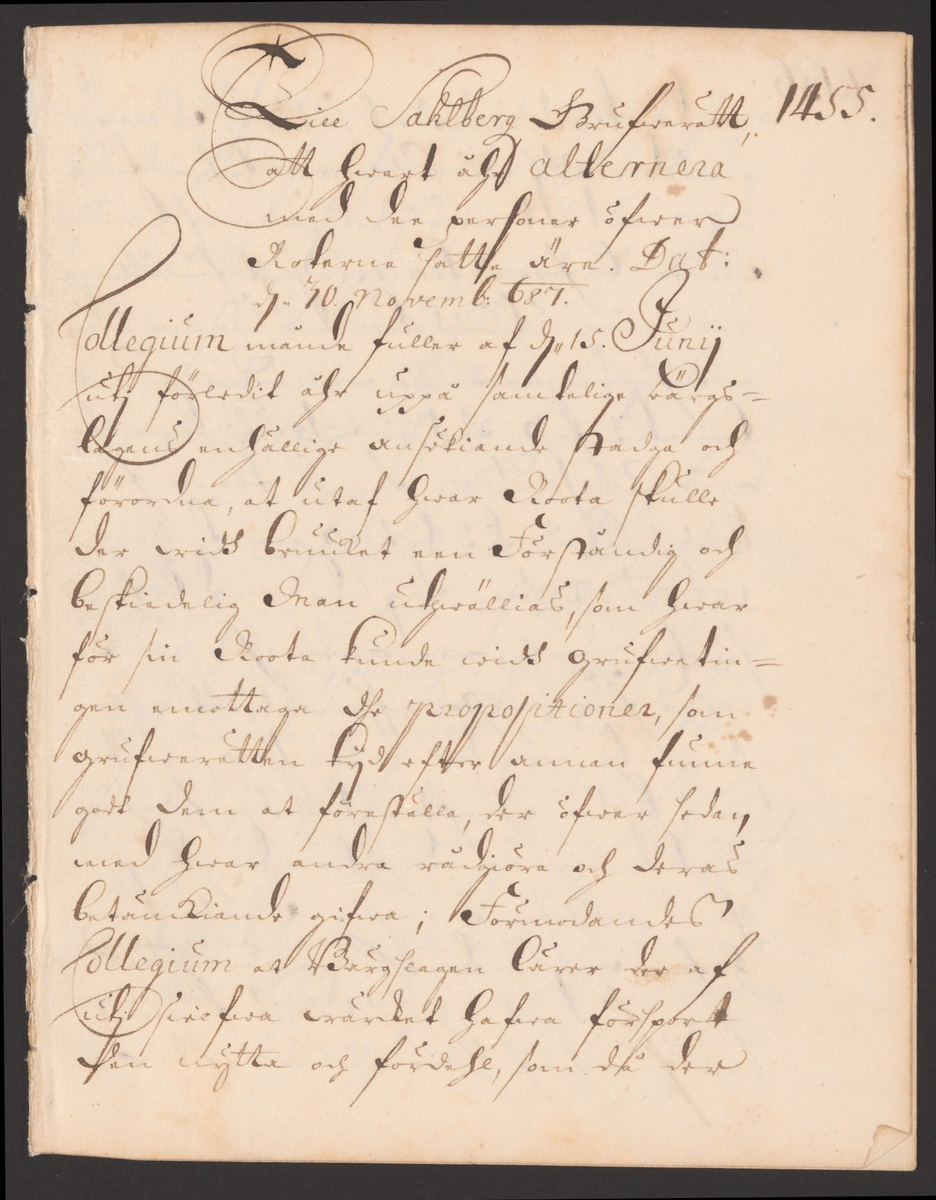 1455.
Till Sahlberg Grufwerätt,
att hwart åhr alternera
med dee personer öfwer
Roterne satte äre. Dat:
d. 30. Novemb: 687.
Collegium månde fuller af d. 15. Junij
utj förledit åhr uppå samtelige bärgs=
lagens enhällige ansökiande stadga och
förordna, at utaf hwar Roota skulle
der widh bruuket een Förståndig och
beskiedelig Man uthwällias, som hwar
för sin Roota kunde widh grufwetin=
gen emottaga dhe propositioner, som
grufwerätten tijd efter annan funne
godt dem at föreställa, der öfwer sedan
med hwar andra rådgiöra och deras
betänckiande gifwa; Förmodandes
Collegium at Bärgslagen lärer der af
utj sielfwa wärcket hafwa försport
den nytta och fördehl, som då der